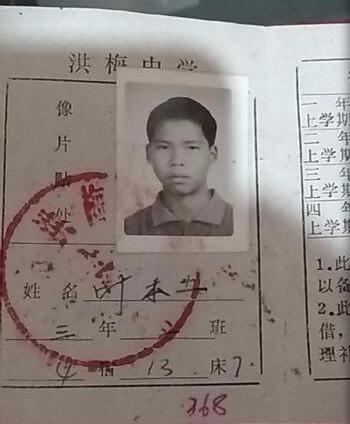 洪梅中学
像
片
贴
处
姓名 叶本
三年二班
宿 13 床 7
368
一 年
上学期
二 年
上学期
三 年
上学期
四 年
上学期
1.此
以备
2.此
借，
理补